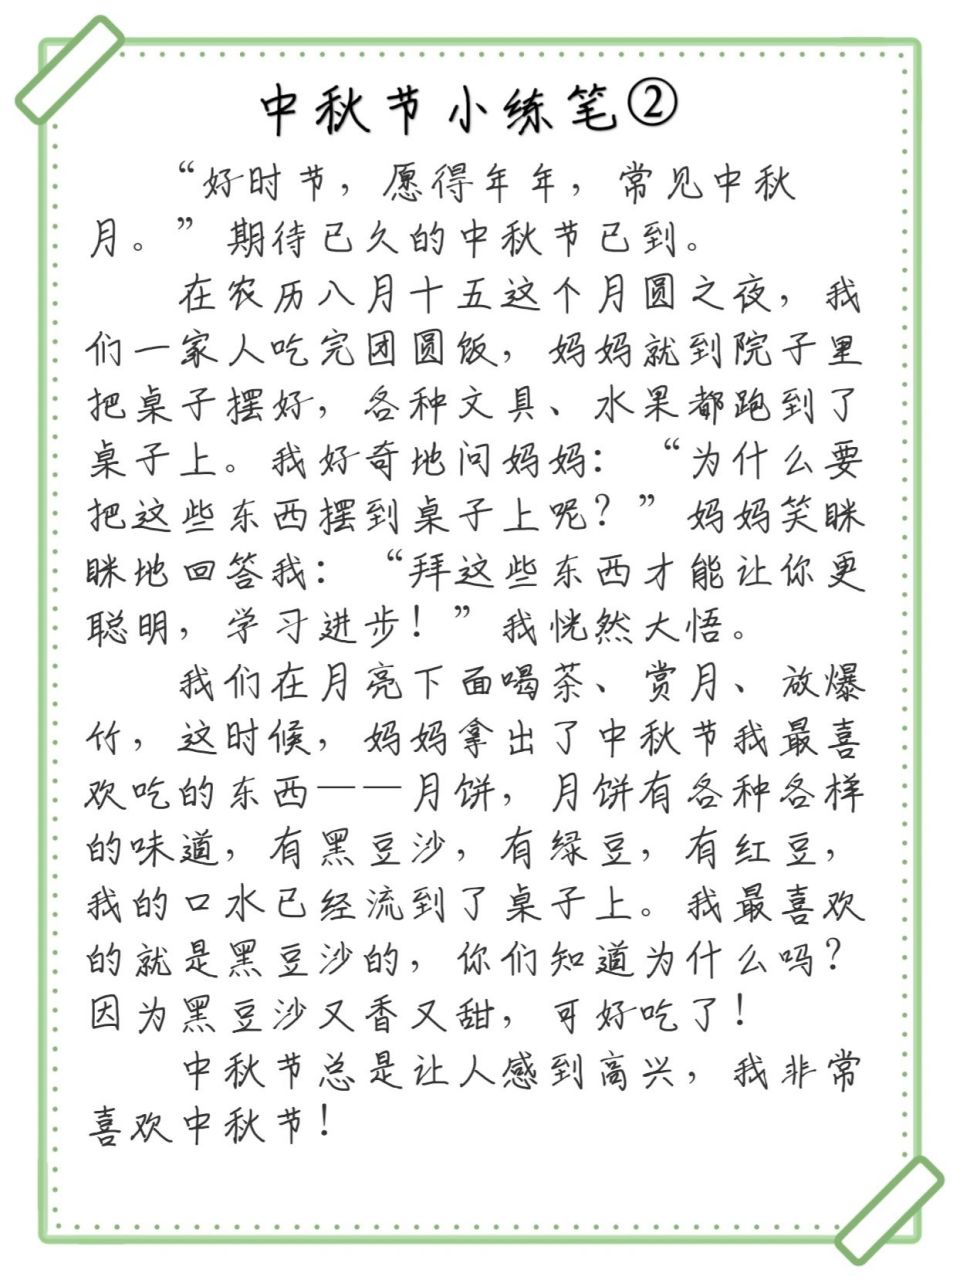 中秋节小练笔②
“好时节，愿得年年，常见中秋
月。”期待已久的中秋节已到。
在农历八月十五这个月圆之夜，我
们一家人吃完团圆饭，妈妈就到院子里
把桌子摆好，各种文具、水果都跑到了
桌子上。我好奇地问妈妈：“为什么要
把这些东西摆到桌子上呢？”妈妈笑眯
眯地回答我：“拜这些东西才能让你更
聪明，学习进步！”我恍然大悟。
我们在月亮下面喝茶、赏月、放爆
竹，这时候，妈妈拿出了中秋节我最喜
欢吃的东西——月饼，月饼有各种各样
的味道，有黑豆沙，有绿豆，有红豆，
我的口水已经流到了桌子上。我最喜欢
的就是黑豆沙的，你们知道为什么吗？
因为黑豆沙又香又甜，可好吃了！
中秋节总是让人感到高兴，我非常
喜欢中秋节！